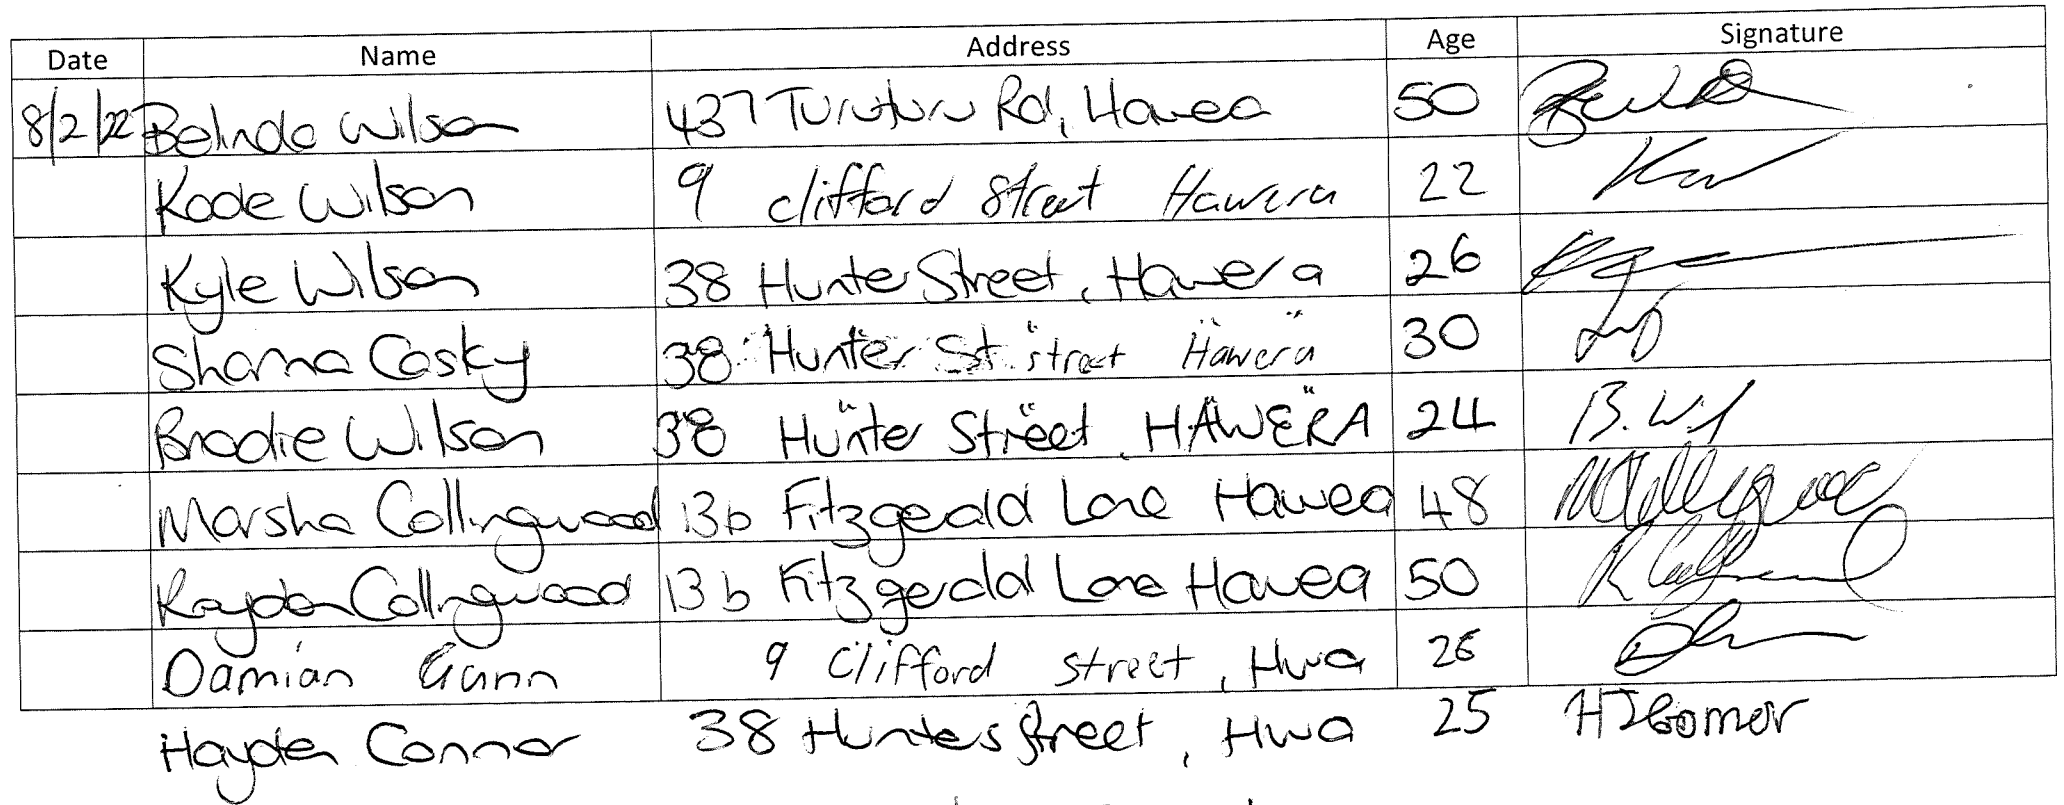 Date Name Address Age Signature
8/2/22 Belinda Wilson 437 Turuturu Rd, Hawea 50
Kade Wilson 9 Clifford Street Hawera 22
Kyle Wilson 38 Hunter Street, Hawera 26
Shama Casky 38 Hunter St street Hawera 30
Brodie Wilson 38 Hunter Street, HAWERA 24 B. Wil
Marsha Collingwood 13b Fitzgerald Lane Hawea 48
Kayden Collingwood 13b Fitzgerald Lane Hawea 50
Damian Gunn 9 Clifford street, Hwa 26
Hayden Connor 38 Hunter street, Hwa 25